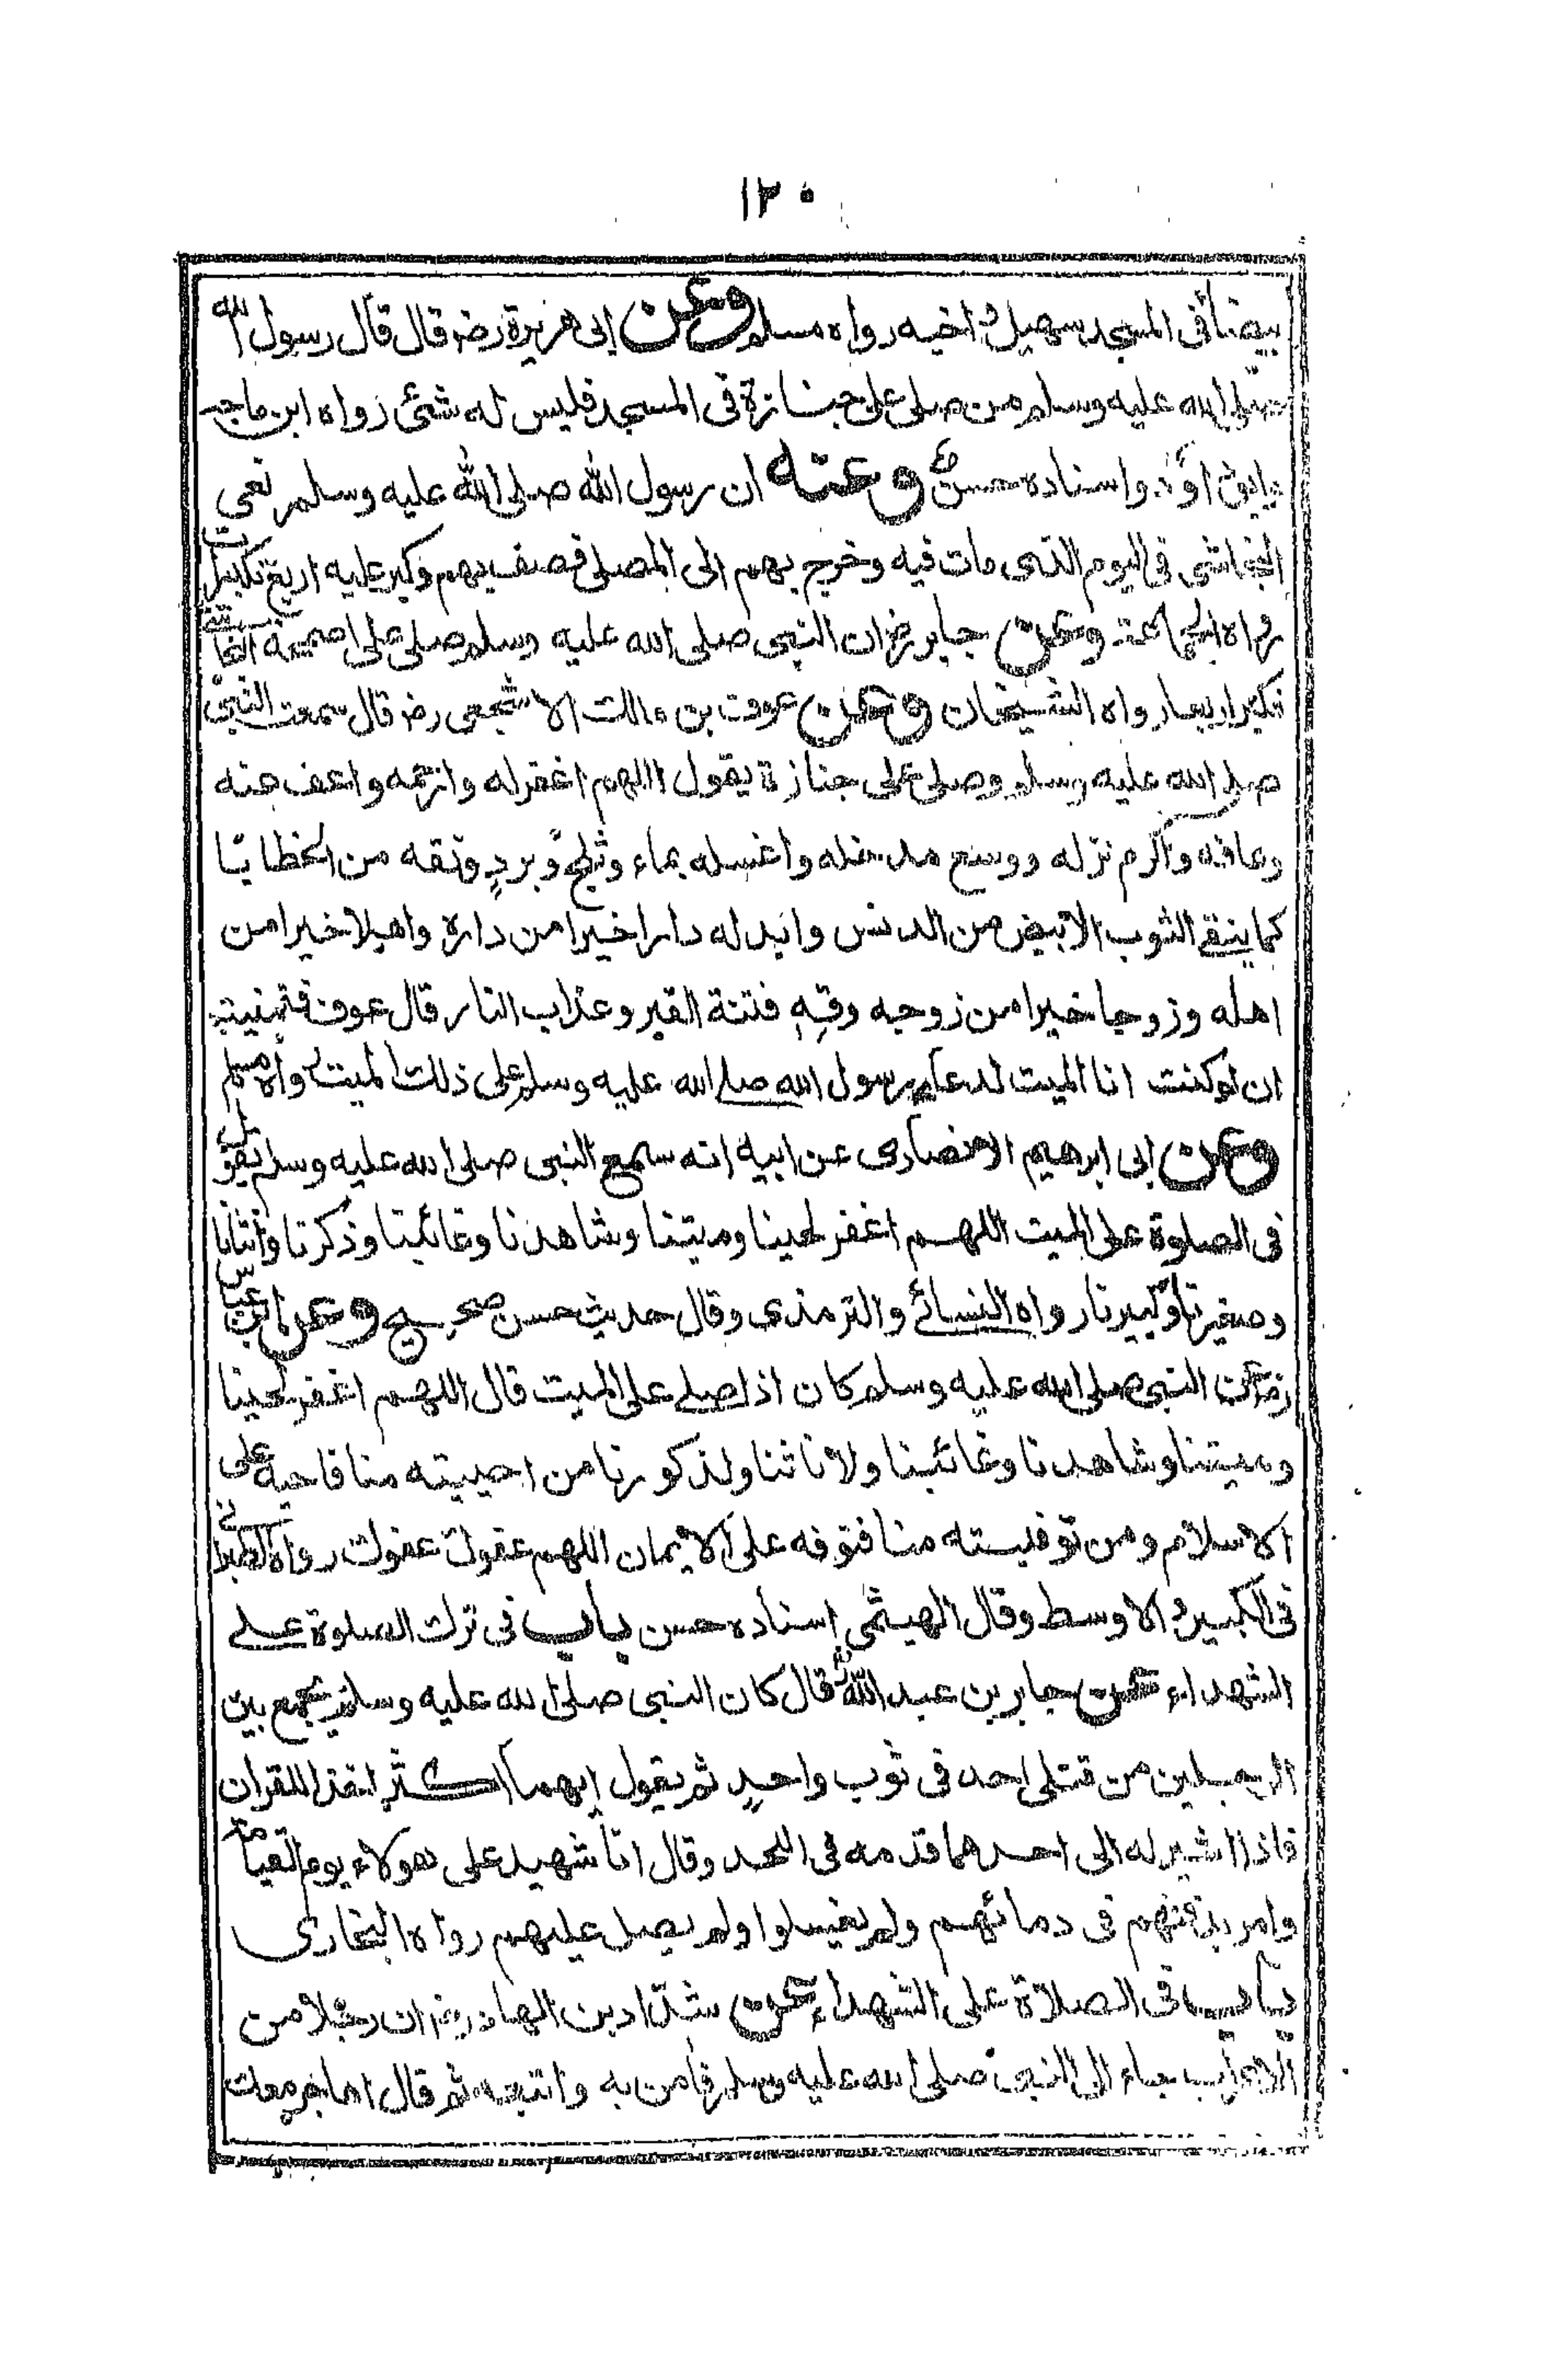 ١٢٠
بيضاء فى المسجد سهيل و اخيه رواه مسلم وعن ابى هريرة رض قال قال رسول الله
صلى الله عليه وسلم من صلى على جنازة فى المسجد فليس له شئ رواه ابن ماجه
واسناده حسن وعنه ان رسول الله صلى الله عليه وسلم نعى
النجاشى فى اليوم الذى مات فيه وخرج بهم الى المصلى فصف بهم وكبر عليه اربع تكبيرات
رواه الجماعة وعن جابر رض ان النبى صلى الله عليه وسلم صلى على اصحمة النجاشى
فكبر اربعا رواه الشيخان وعن عوف بن مالك الاشجعى رض قال سمعت النبى
صلى الله عليه وسلم وصلى على جنازة يقول اللهم اغفر له وارحمه واعف عنه
وعافه واكرم نزله ووسع مدخله واغسله بماء وثلج وبرد ونقه من الخطايا
كما ينقى الثوب الابيض من الدنس وابدله دارا خيرا من داره واهلا خيرا من
اهله وزوجا خيرا من زوجه وقه فتنة القبر وعذاب النار قال عوف فتمنيت
ان لو كنت انا الميت لدعاء رسول الله صلى الله عليه وسلم على ذلك الميت رواه مسلم
وعن ابى ابرهيم الانصارى عن ابيه انه سمع النبى صلى الله عليه وسلم يقول
فى الصلوة على الميت اللهم اغفر لحينا وميتنا وشاهدنا وغائبنا وذكرنا وانثانا
وصغيرنا وكبيرنا رواه النسائے والترمذى وقال حديث حسن صحيح وعن ابن عباس
رض عن النبى صلى الله عليه وسلم كان اذا صلے على الميت قال اللهم اغفر لحينا
وميتنا وشاهدنا وغائبنا ولاناثنا ولذكورنا من احييته منا فاحيه على
الاسلام ومن توفيته منا فتوفه على الايمان اللهم عفوك عفوك رواه الطبرانى
فى الكبير و الاوسط وقال الهيثمى اسناده حسن باب فى ترك الصلوة علے
الشهداء عن جابر بن عبد الله رض قال كان النبى صلى الله عليه وسلم يجمع بين
الرجلين من قتلى احد فى ثوب واحد ثم يقول ايهما اكثر اخذا للقران
فاذا اشير له الى احدهما قدمه فى اللحد وقال انا شهيد على هولاء يوم القيامة
وامر بدفنهم فى دمائهم ولم يغسلوا ولم يصل عليهم رواه البخارى
باب فى الصلاة على الشهداء عن شداد بن الهاد رض ان رجلا من
الاعراب جاء الى النبى صلى الله عليه وسلم فامن به واتبعه ثم قال اهاجر معك